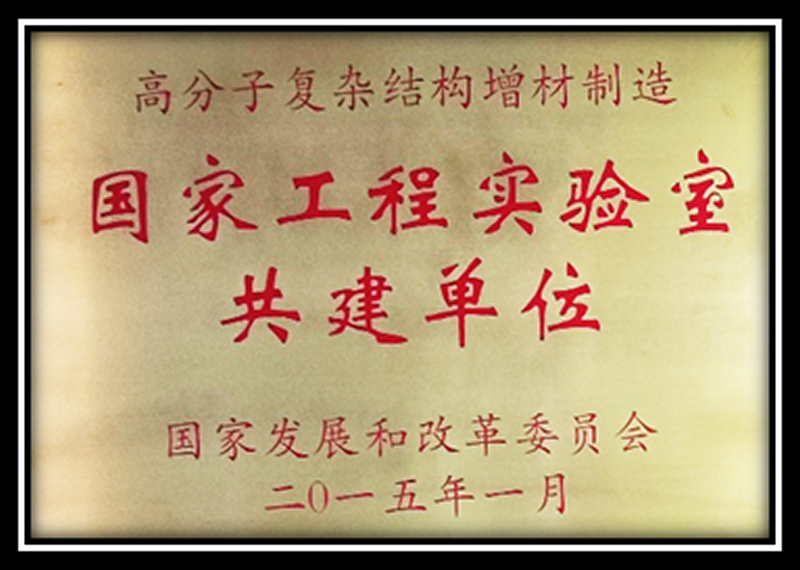 高分子复杂结构增材制造
国家工程实验室
共建单位
国家发展和改革委员会
二0一五年一月